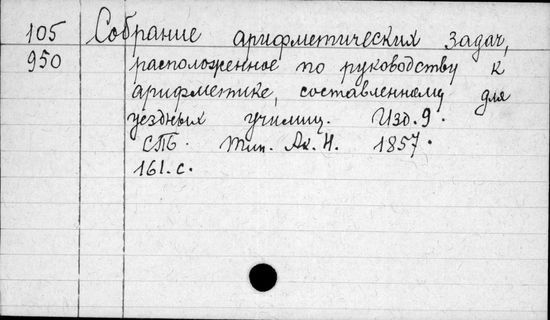 105 Собрание арифметических задач,
950 расположенное по руководству к
арифметике, составленному для
уездных училищ. Изд. 9.
СПБ. Тип. Ак. Н. 1857.
161. с.